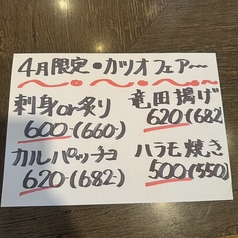 4月限定・カツオフェア〜
刺身or炙り
600-(660-)
竜田揚げ
620(682
カルパッチョ
620-(682-)
ハラモ焼き
500(550)